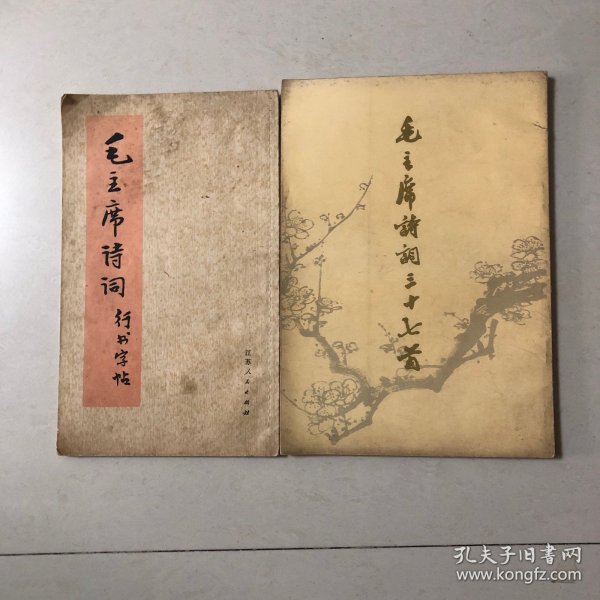 毛主席诗词
行书字帖
江苏人民出版社
毛主席詩詞三十七首
孔夫子旧书网
www.kongfz.com